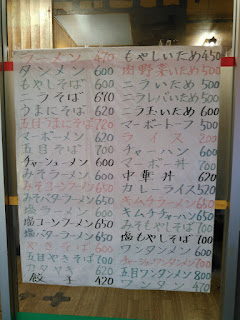 ラーメン 470
タンメン 600
もやしそば 600
ニラそば
うまにそば 620
五目うまにそば 720
マーボーメン 620
五目そば 700
チャーシューメン 600
みそラーメン 600
みそコーンラーメン 650
みそバターラーメン 650
塩ラーメン 600
塩コーンラーメン 650
塩バターラーメン 650
やきそば 600
五目やきそば 700
カタヤキ 620
餃子 420
もやしいため 450
肉野菜いため 500
ニラいため 500
ニラレバいため 500
ニラ玉いため 600
マーボートーフ 500
ライス
チャーハン 600
マーボー丼 700
中華丼 620
カレーライス 520
キムチラーメン 650
キムチチャーハン 650
みそもやしそば 700
塩もやしそば 700
ワンタンメン 600
五目ワンタンメン 800
ワンタン 470